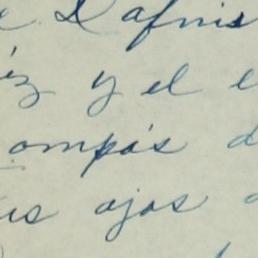 e Dafnis
éz y el e
ompás d
us ojos